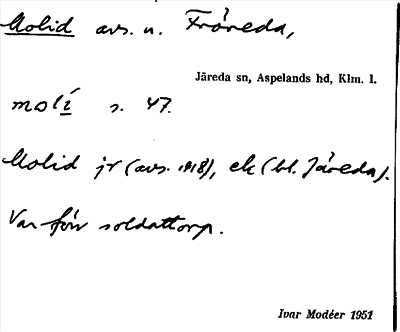 Molid avs. u. Fröreda,
Järeda sn, Aspelands hd, Klm. l.
molí s. 47.
Molid jr (avs. 1918), ek (bl. Järeda).
Var förr soldattorp.
Ivar Modéer 1951